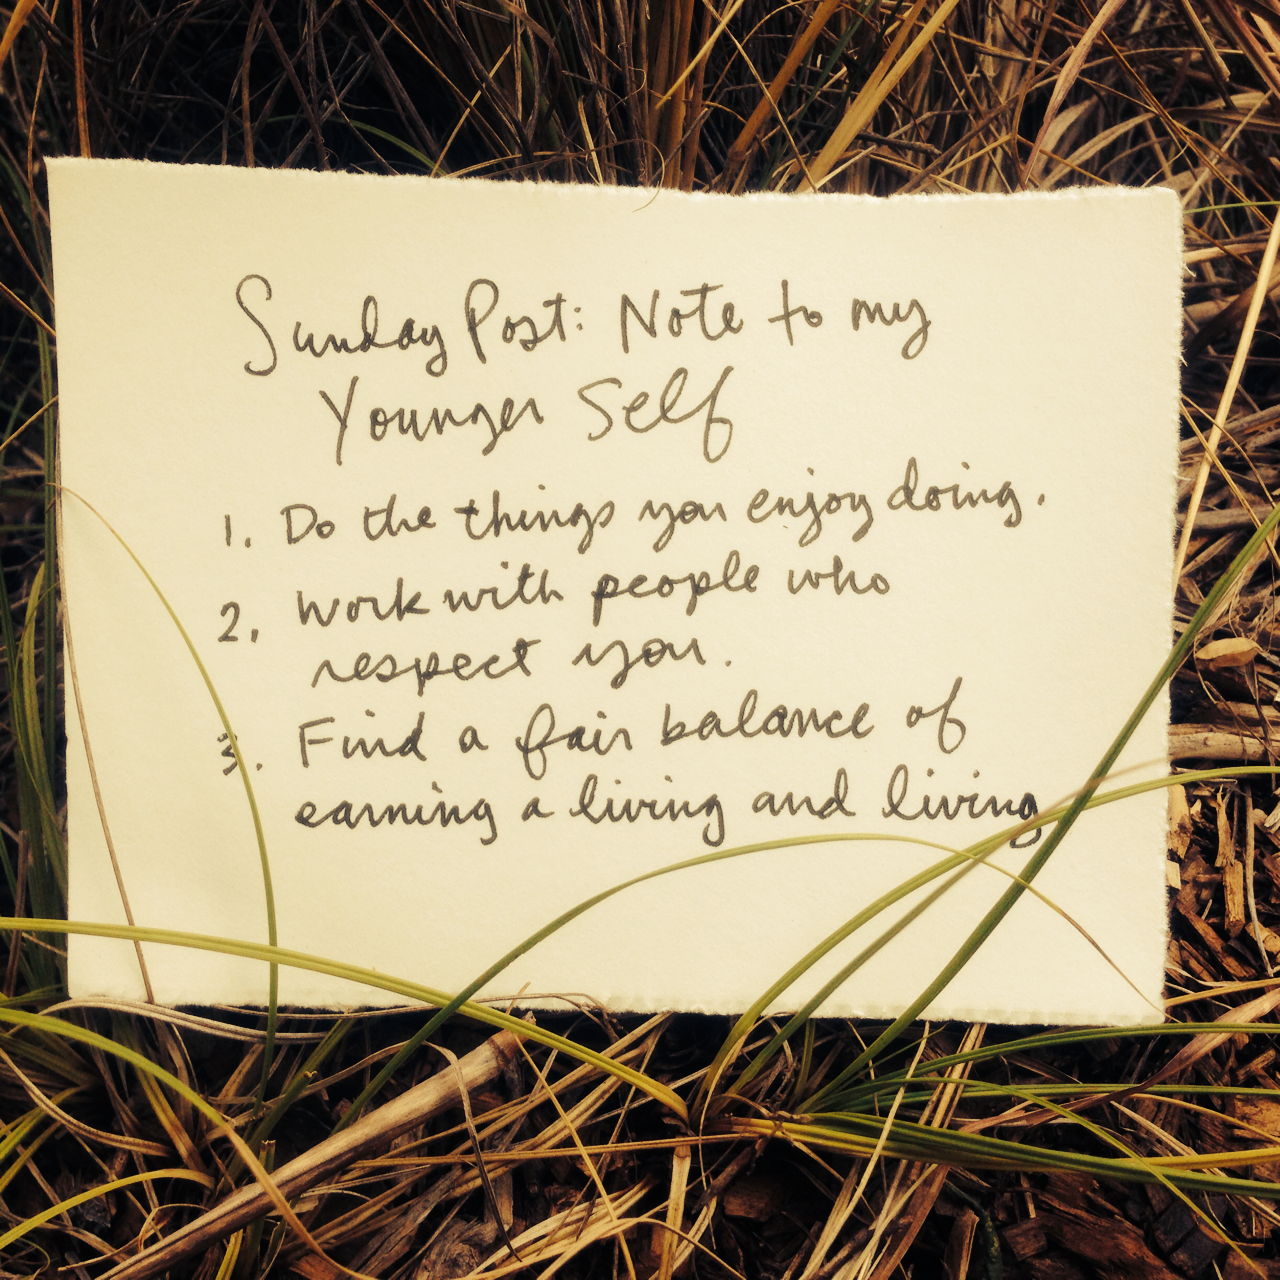 Sunday Post: Note to my
Younger Self
1. Do the things you enjoy doing.
2. Work with people who
respect you.
3. Find a fair balance of
earning a living and living